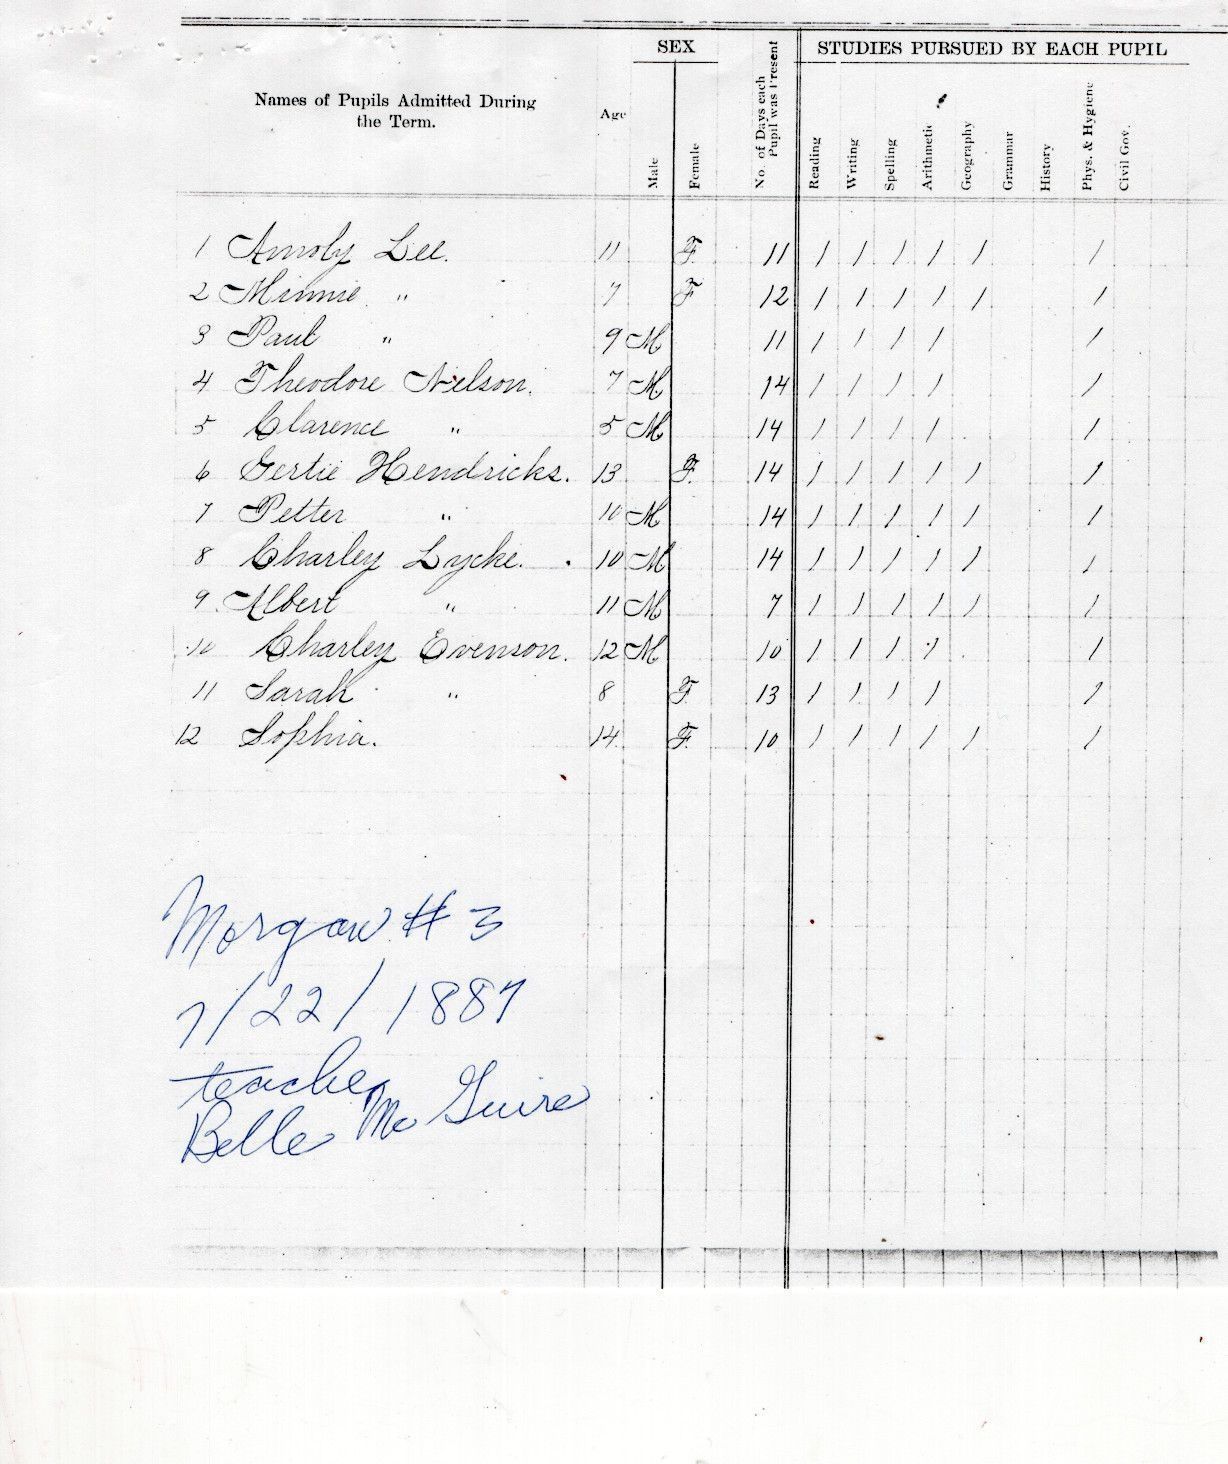 SEX
STUDIES PURSUED BY EACH PUPIL
Names of Pupils Admitted During
the Term.
Age
Male
Female
No. of Days each
Pupil was Present
Reading
Writing
Spelling
Arithmetic
Geography
Grammar
History
Phys. & Hygiene
Civil Gov.
1 Amoly Lee. 11 F 11 / / / / / /
2 Minnie " 7 F 12 / / / / / /
3 Paul " 9 M 11 / / / / /
4 Theodore Nelson. 7 M 14 / / / / /
5 Clarence " 5 M 14 / / / / /
6 Gertie Hendricks. 13 F. 14 / / / / / /
7 Petter " 10 M 14 / / / / / /
8 Charley Lycke. 10 M 14 / / / / / /
9. Albert " 11 M 7 / / / / / /
10 Charley Evenson. 12 M 10 / / / / /
11 Sarah " 8 F. 13 / / / / /
12 Sophia. 14 F. 10 / / / / / /
Morgan # 3
7/22/1887
teacher
Belle Mc Guire